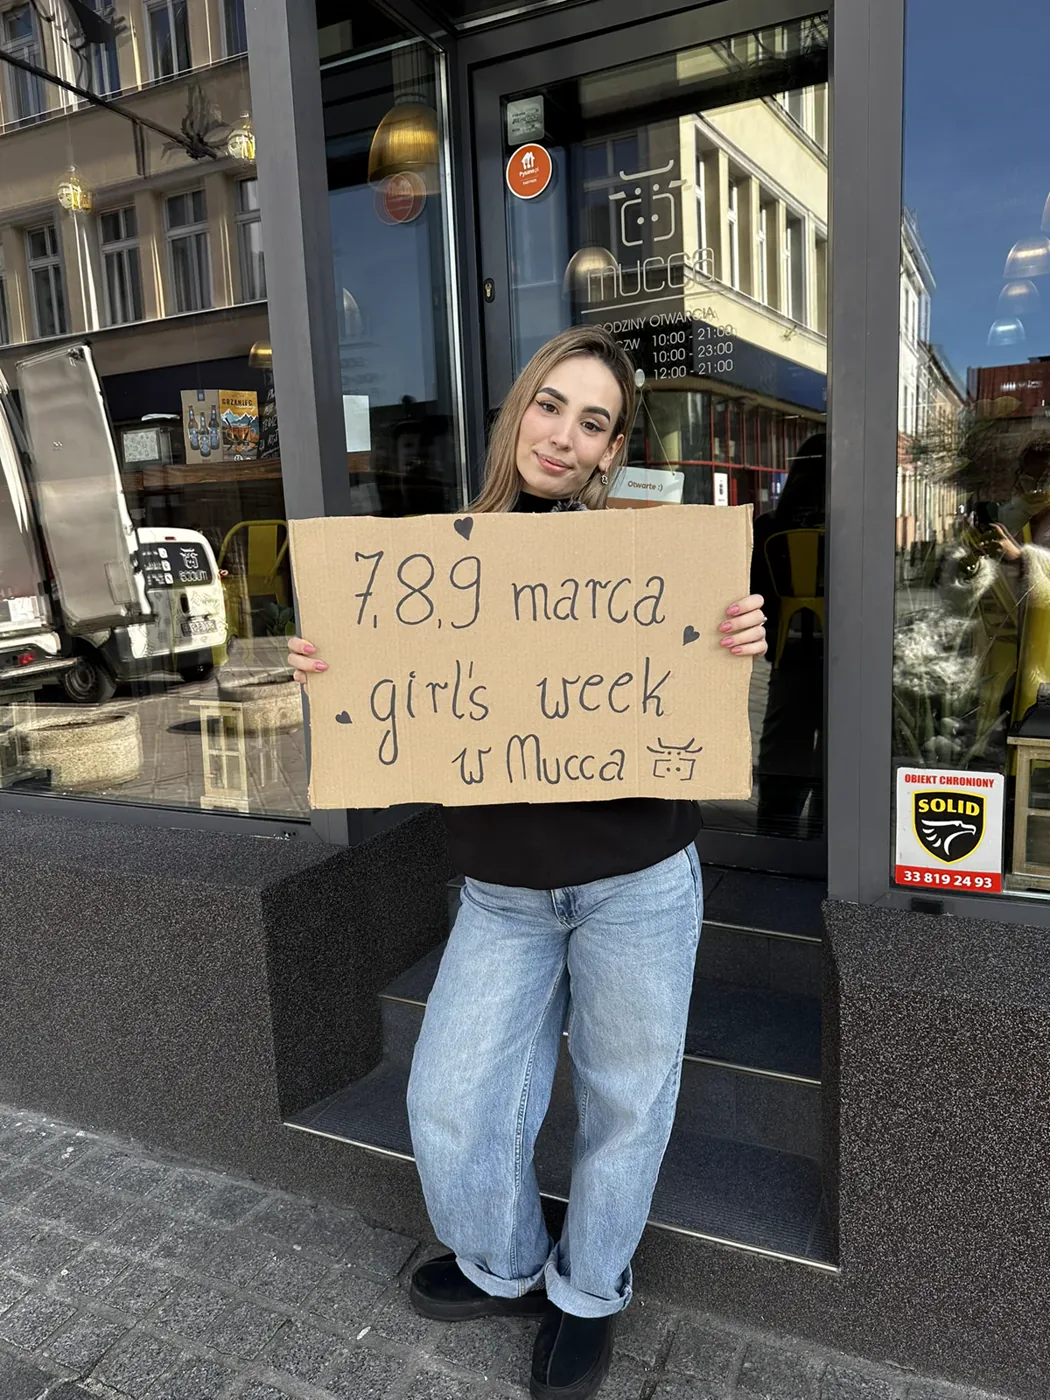 Pyszne.pl
mucca
GODZINY OTWARCIA
CZW 10:00 - 21:00
10:00 - 23:00
12:00 - 21:00
GRZANIEC
Otwarte :)
7,8,9 marca
girl's week
w Mucca
OBIEKT CHRONIONY
SOLID
33 819 24 93